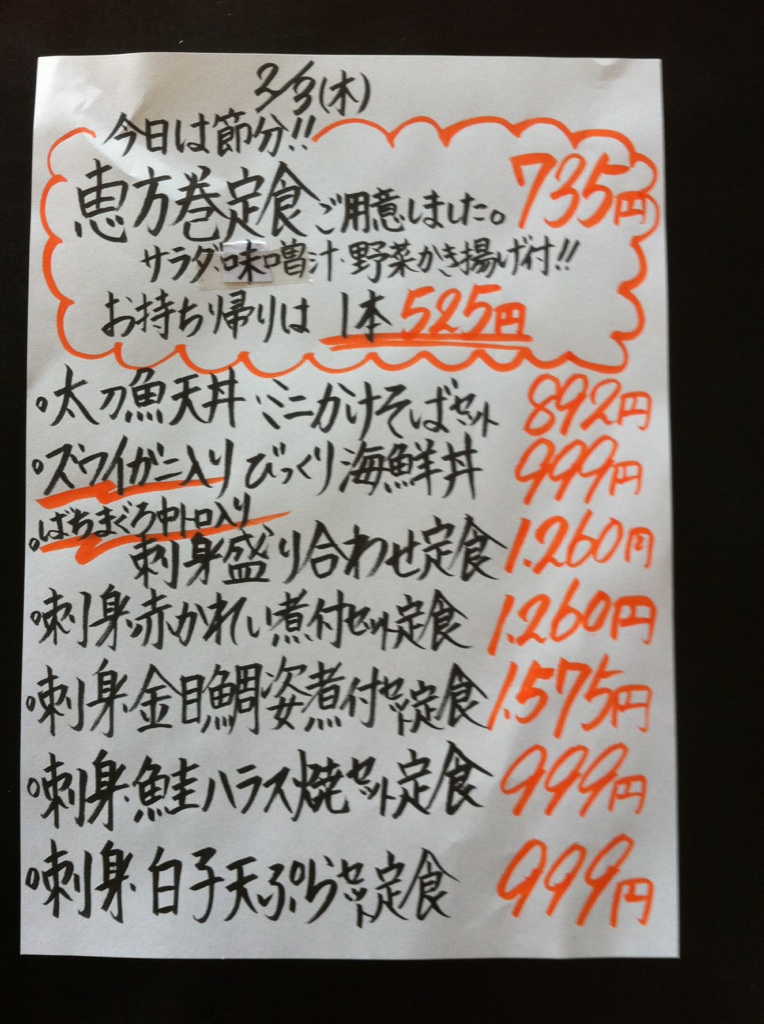 2/3(木)
今日は節分!!
恵方巻定食ご用意しました。735円
サラダ・味噌汁・野菜かき揚げ付!!
お持ち帰りは 1本 525円
。太刀魚天丼 ミニかけそばセット 892円
。ズワイガニ入り びっくり海鮮丼 999円
ばちまぐろ中トロ入り
。刺身盛り合わせ定食 1.260円
。刺身・赤かれい煮付セット定食 1.260円
。刺身・金目鯛姿煮付セット定食 1.575円
。刺身・鮭ハラス焼セット定食 999円
。刺身・白子天ぷらセット定食 999円